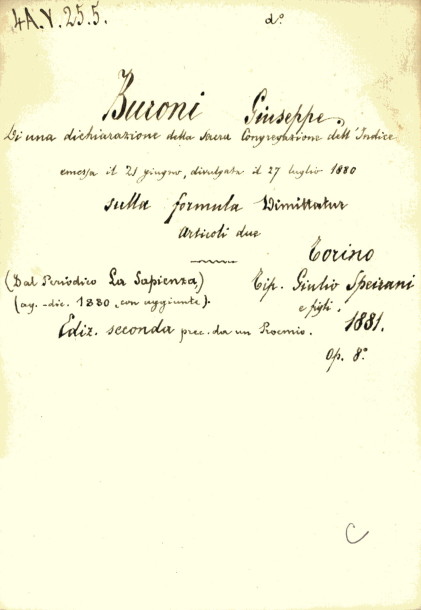 4A.V.25.5.
d.º
Buroni Giuseppe.
Di una dichiarazione della Sacra Congregazione dell'Indice
emessa il 21 giugno, divulgata il 27 luglio 1880
sulla formula Dimittatur
Articoli due
Torino
(Dal Periodico La Sapienza) Tip. Giulio Speirani
(ag.-dic. 1880, con aggiunte). e figli. 1881.
Ediz. seconda prec. da un Proemio.
Op. 8º
C